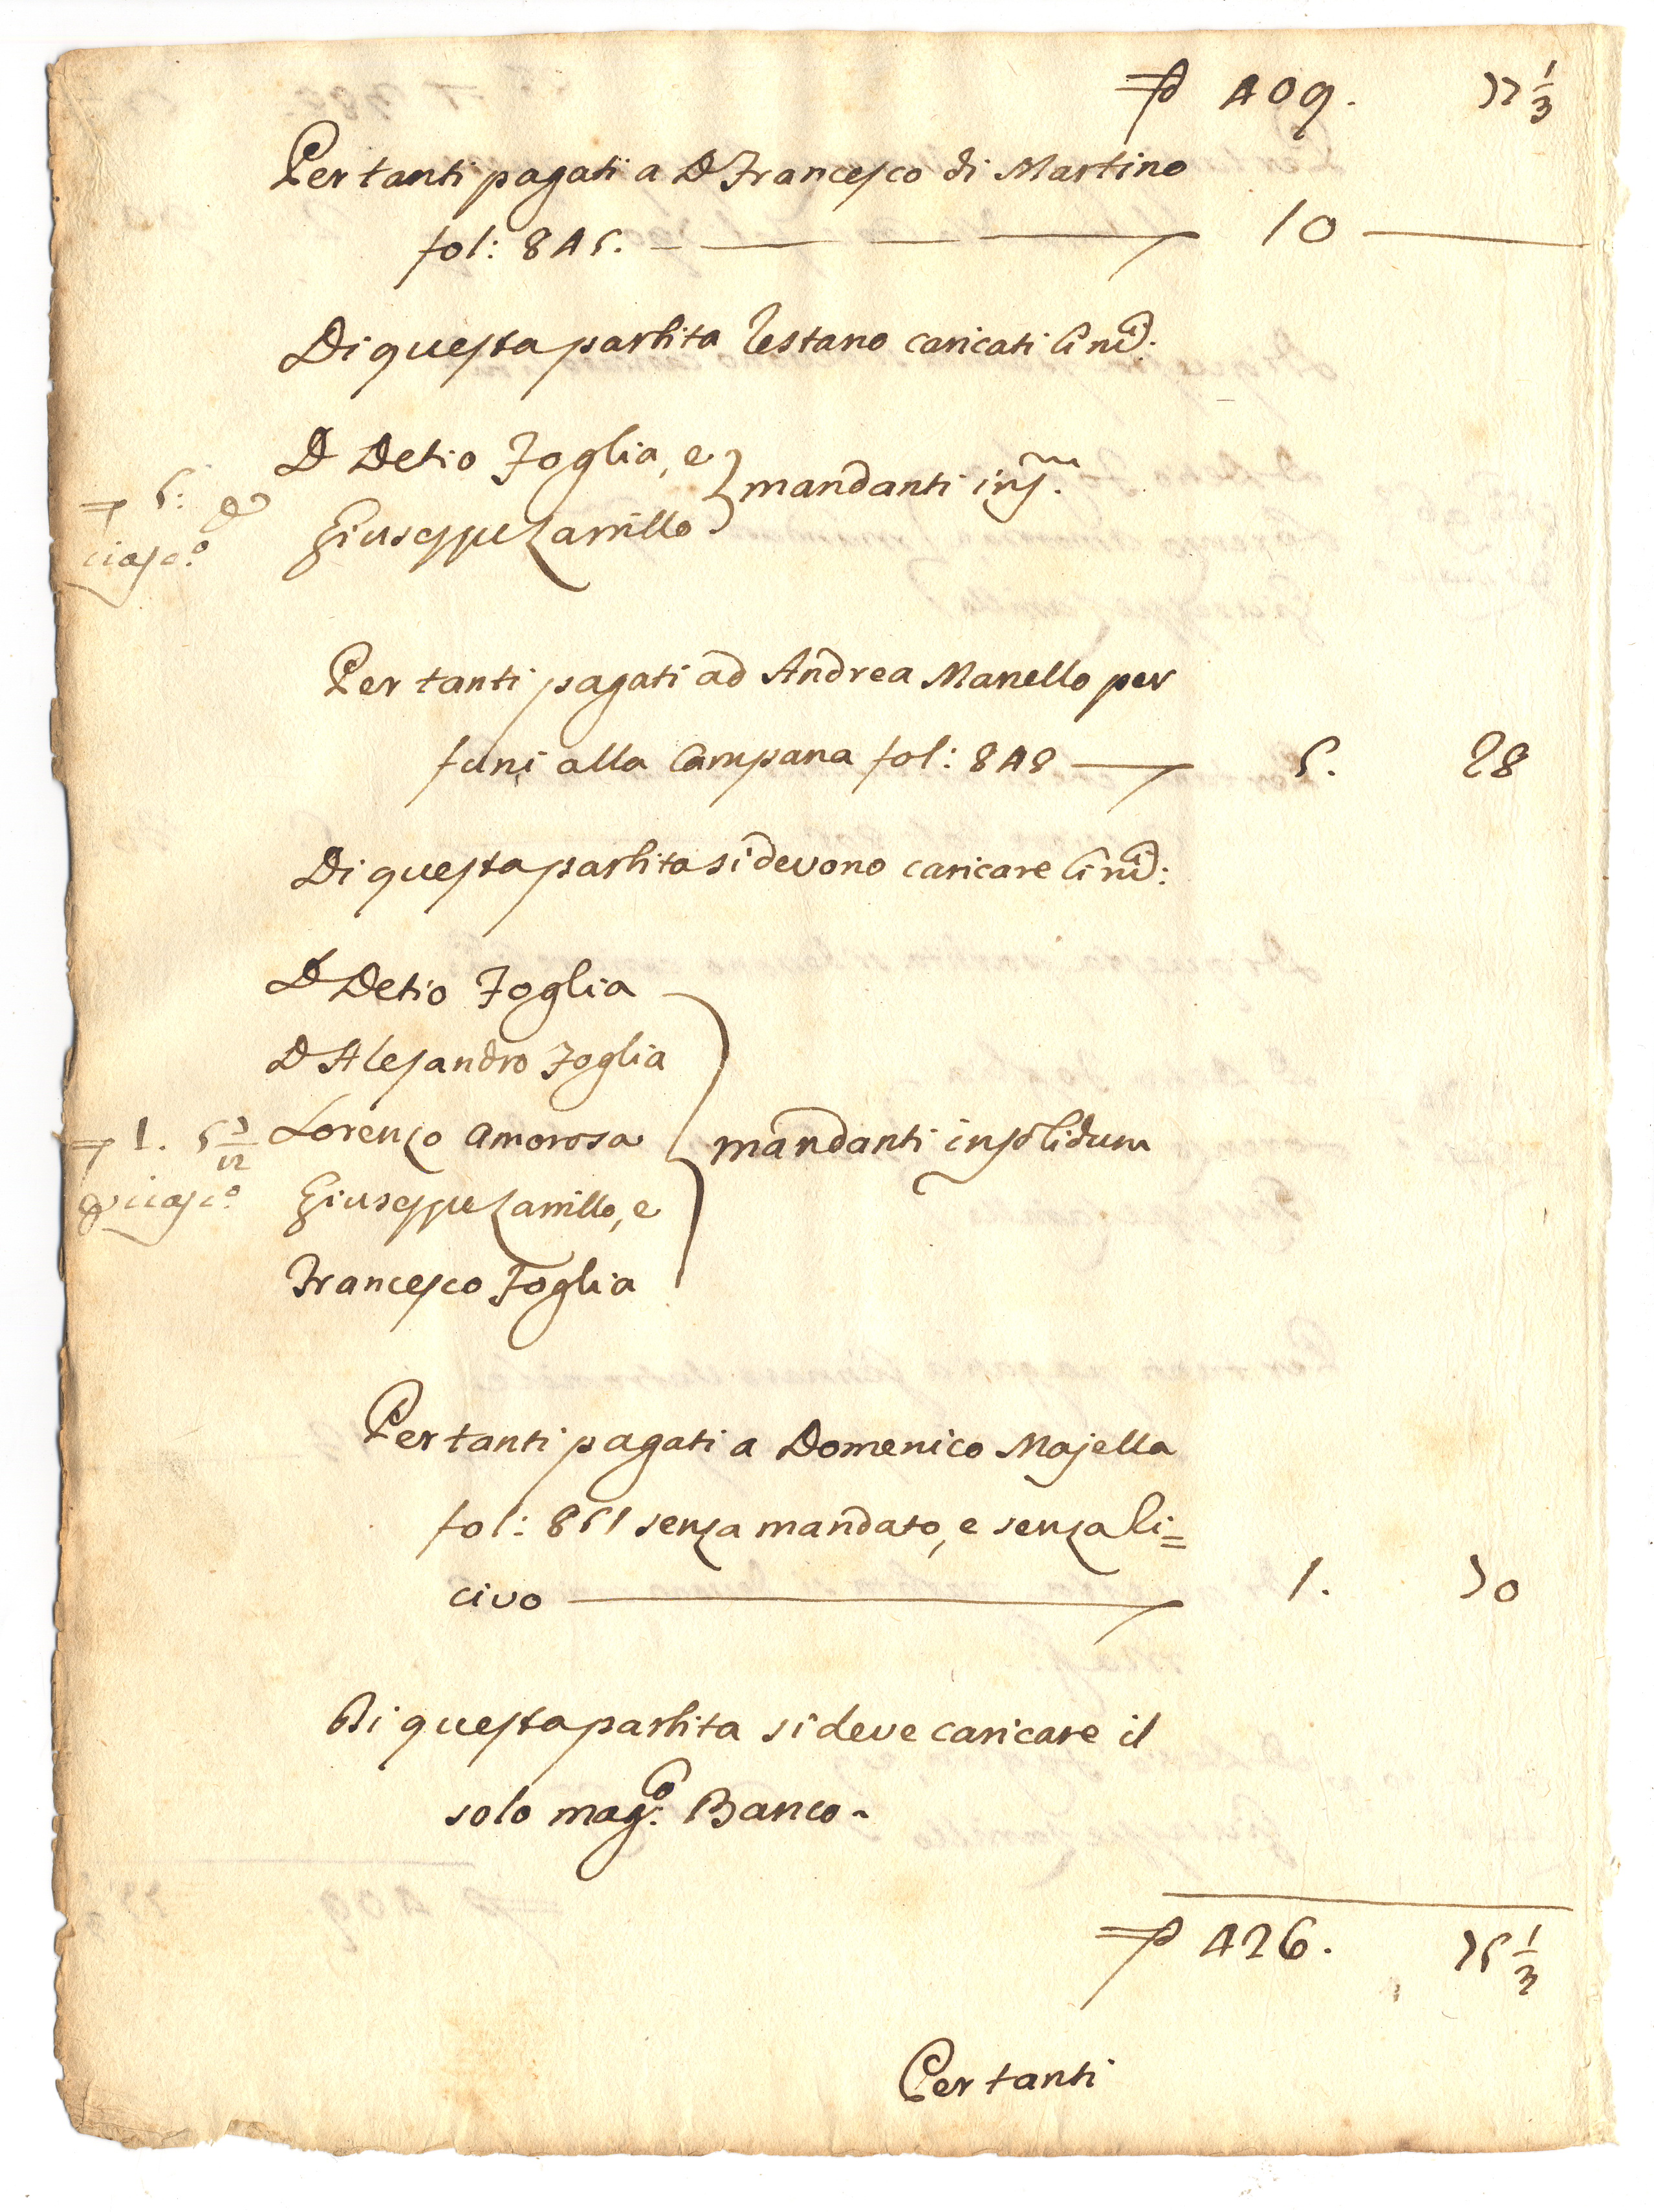 409. 77 1/3
Per tanti pagati a D. Francesco di Martino
fol: 845. — 10 —
Di questa partita restano caricati
D. Detio Foglia, e
Giuseppe Zarrillo
mandanti ins.m
5: per
ciasc.o
Per tanti pagati ad Andrea Manello per
funi alla Campana fol: 848 — 5. 28
Di questa partita si devono caricare
D. Detio Foglia
D. Alesandro Foglia
Lorenzo Amorosa
Giuseppe Zarrillo, e
Francesco Foglia
mandanti insolidum
1. 5 7/12
per ciasc.o
Per tanti pagati a Domenico Majella
fol: 851 senza mandato, e senza ri=
civo — 1. 70
Di questa partita si deve caricare il
solo mag.co Banco.
426. 75 1/3
Per tanti